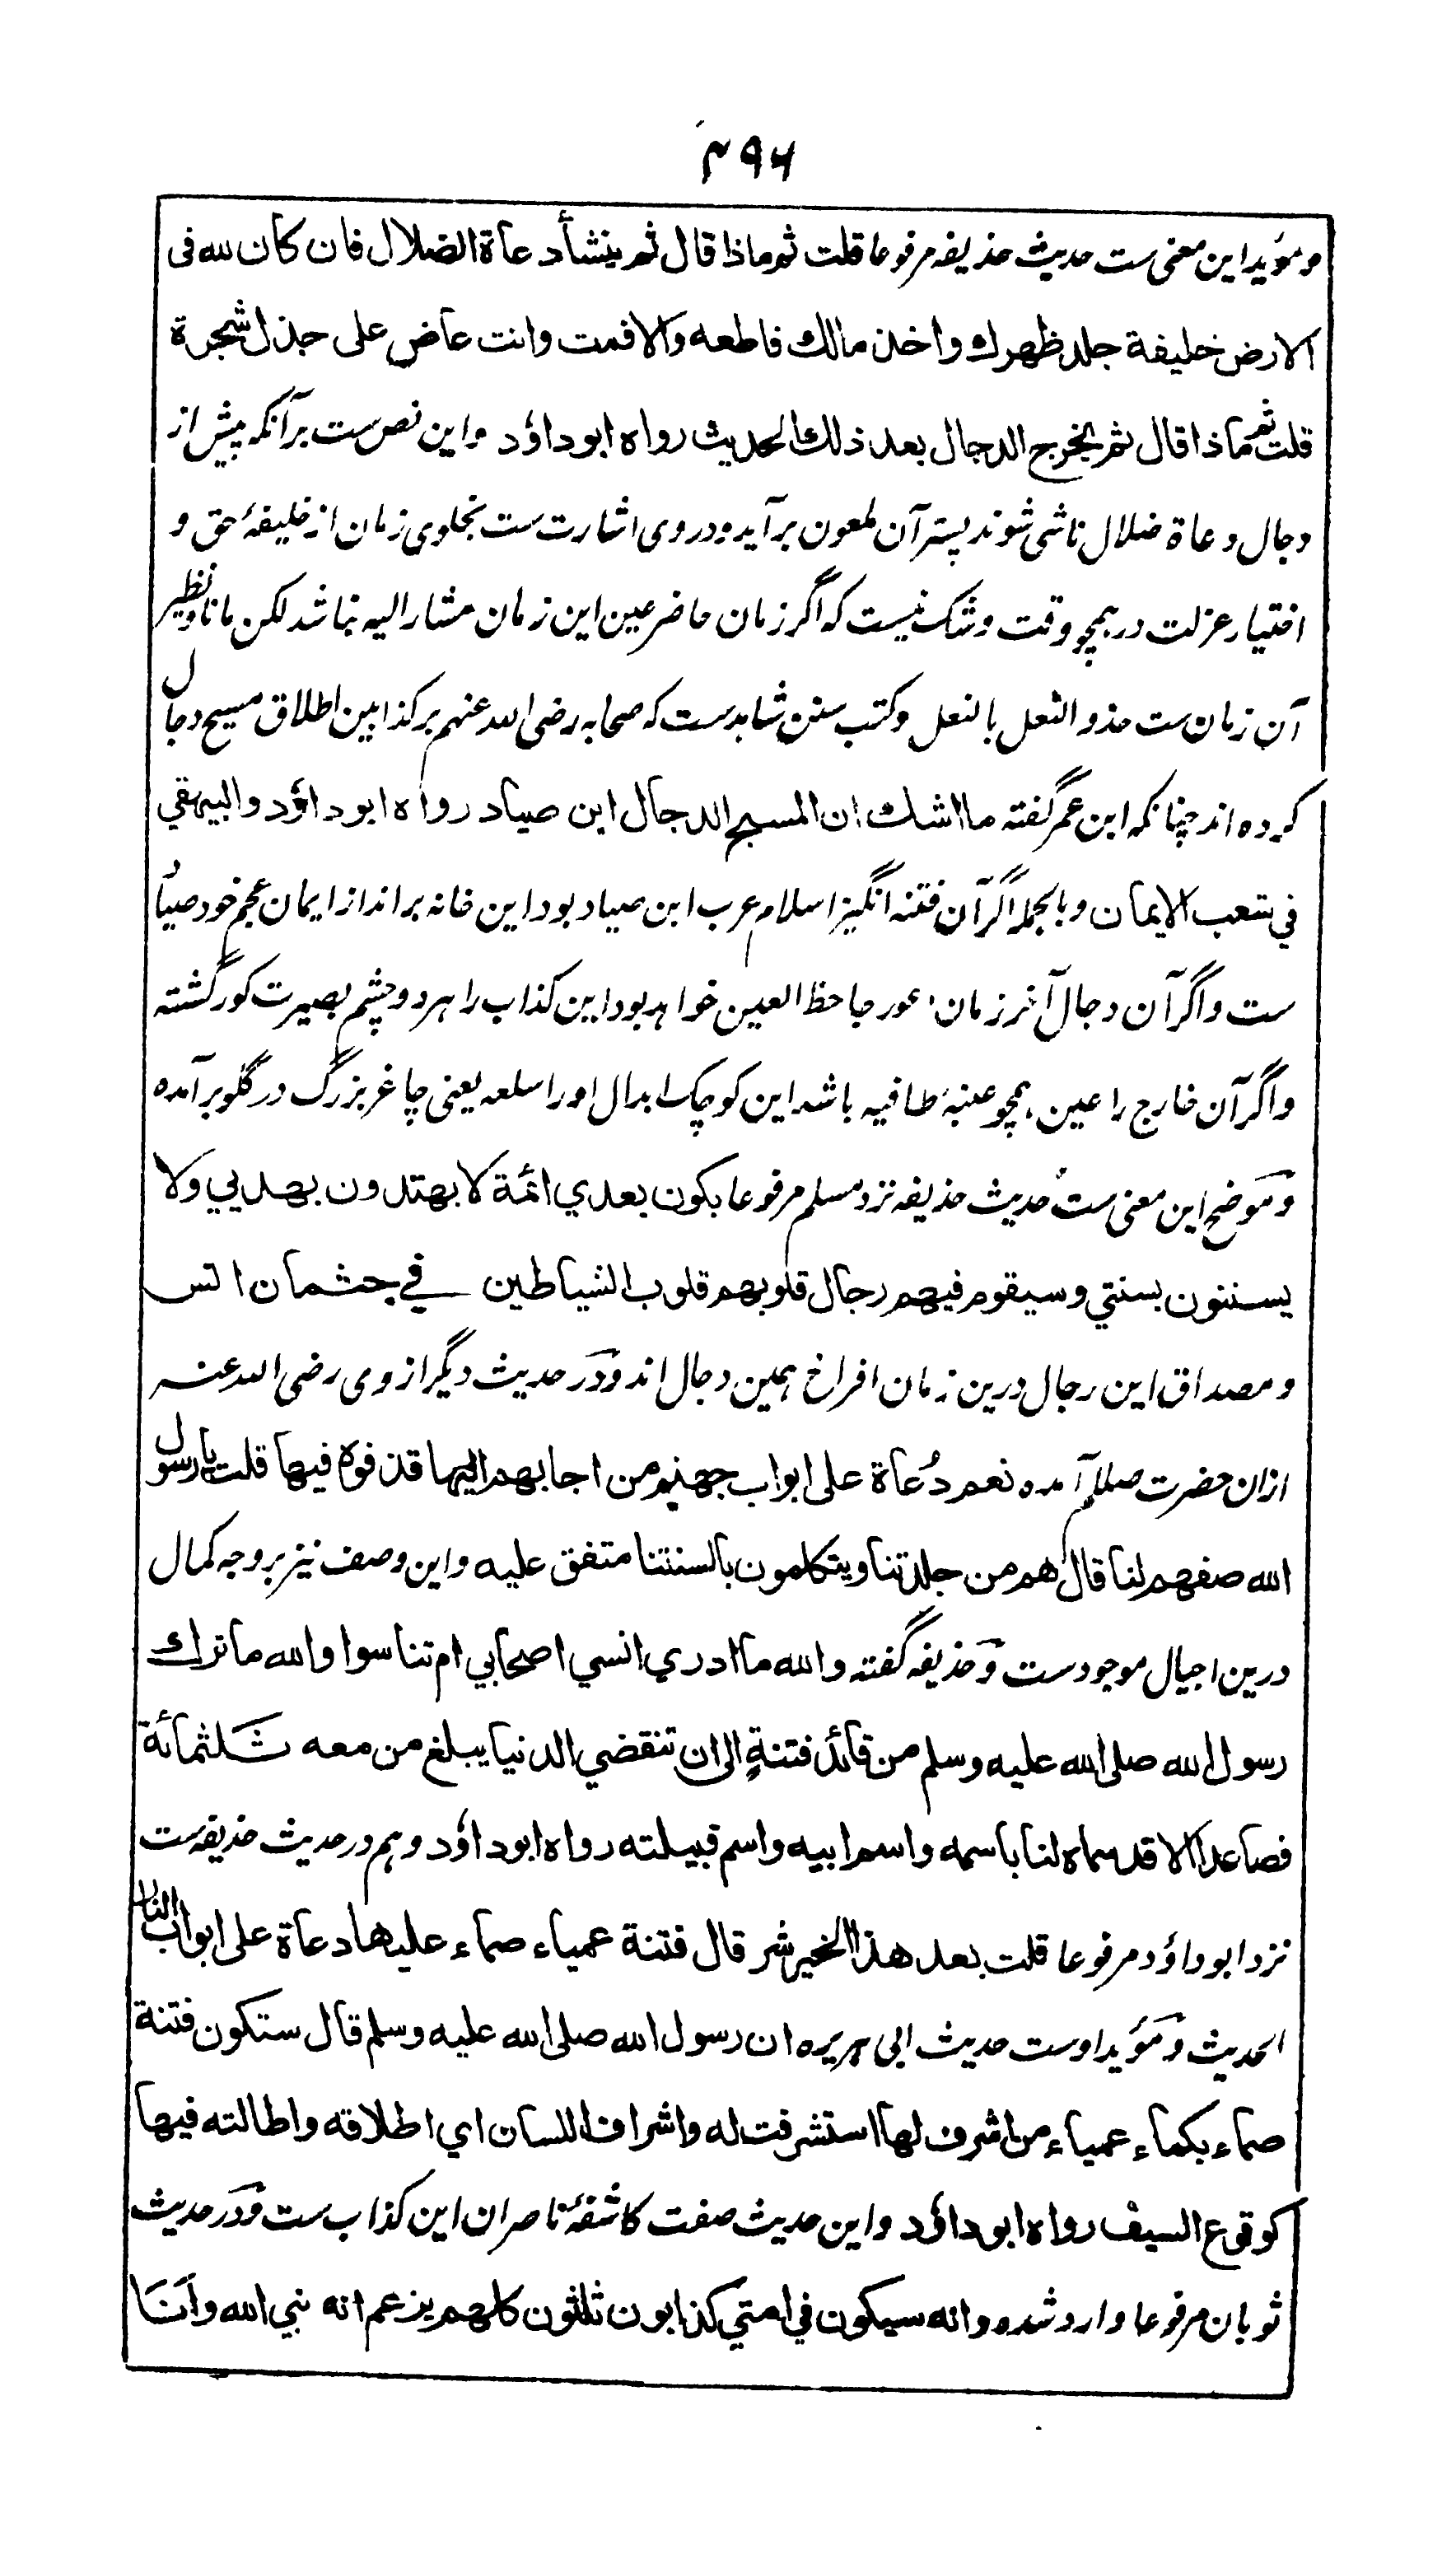 ۴۹۶
و مؤید این معنی ست حدیث حذیفه مرفوعا قلت ثم ماذا قال ثم ینشأ دعاة الضلال فان کان لله فی
الارض خلیفة جلد ظهرك واخذ مالك فاطعه والا فمت وانت عاض علی جذل شجرة
قلت ثم ماذا قال ثم یخرج الدجال بعد ذلك الحدیث رواه ابوداؤد و این نص ست بر آنکه پیش از
دجال دعاة ضلال ناشی شوند پستر آن لمعون برآید و دروی اشارت ست بخلوی زمان از خلیفهٔ حق و
اختیار عزلت در همچو وقت و شک نیست که اگر زمان حاضر عین این زمان مشار الیه نباشد لکن مانا و نظیر
آن زمان ست حذو النعل بالنعل و کتب سنن شاهد ست که صحابه رضی الله عنهم بر کذابین اطلاق مسیح دجال
کرده اند چنانکه ابن عمر گفته ما اشك ان المسیح الدجال ابن صیاد رواه ابوداؤد والبیهقي
في شعب الایمان و بالجمله اگر آن فتنه انگیز اسلام عرب ابن صیاد بود این خانه برانداز ایمان عجم خود صیاد
ست و اگر آن دجال آخر زمان اعور جاحظ العین خواهد بود این کذاب را هر دو چشم بصیرت کور گشته
و اگر آن خارج را عین همچو عنبهٔ طافیه باشد این کوچک ابدال او را سلعه یعنی چاغر بزرگ در گلو برآمده
و موضح این معنی ست حدیث حذیفه نزد مسلم مرفوعا یکون بعدي ائمة لا یهتدون بهديي ولا
یستنون بسنتي وسیقوم فیهم رجال قلوبهم قلوب الشیاطین في جثمان انس
و مصداق این رجال درین زمان افراخ همین دجال اند و در حدیث دیگر از وی رضی الله عنه
ازان حضرت صللم آمده نعم دُعاة علی ابواب جهنم من اجابهم الیها قذفوه فیها قلت یا رسول
الله صفهم لنا قال هم من جلدتنا ویتکلمون بالسنتنا متفق علیه و این وصف نیز بر وجه کمال
درین اجیال موجود ست و حذیفه گفته والله ما ادري انسي اصحابي ام تناسوا والله ما ترك
رسول الله صلی الله علیه وسلم من قائد فتنةٍ الی ان تنقضي الدنیا یبلغ من معه ثلثمائة
فصاعدا الا قد سماه لنا باسمه واسم ابیه واسم قبیلته رواه ابوداؤد و هم در حدیث حذیفه ست
نزد ابوداؤد مرفوعا قلت بعد هذا الخیر شر قال فتنة عمیاء صماء علیها دعاة علی ابواب النار
الحدیث و مؤید اوست حدیث ابی هریره ان رسول الله صلی الله علیه وسلم قال ستکون فتنة
صماء بکماء عمیاء من اشرف لها استشرفت له واشراف اللسان اي اطلاقه واطالته فیها
کوقوع السیف رواه ابوداؤد و این حدیث صفت کاشفهٔ ناصران این کذاب ست و در حدیث
ثوبان مرفوعا وارد شده وانه سیکون في امتي کذابون ثلثون کلهم یزعم انه نبي الله وانا